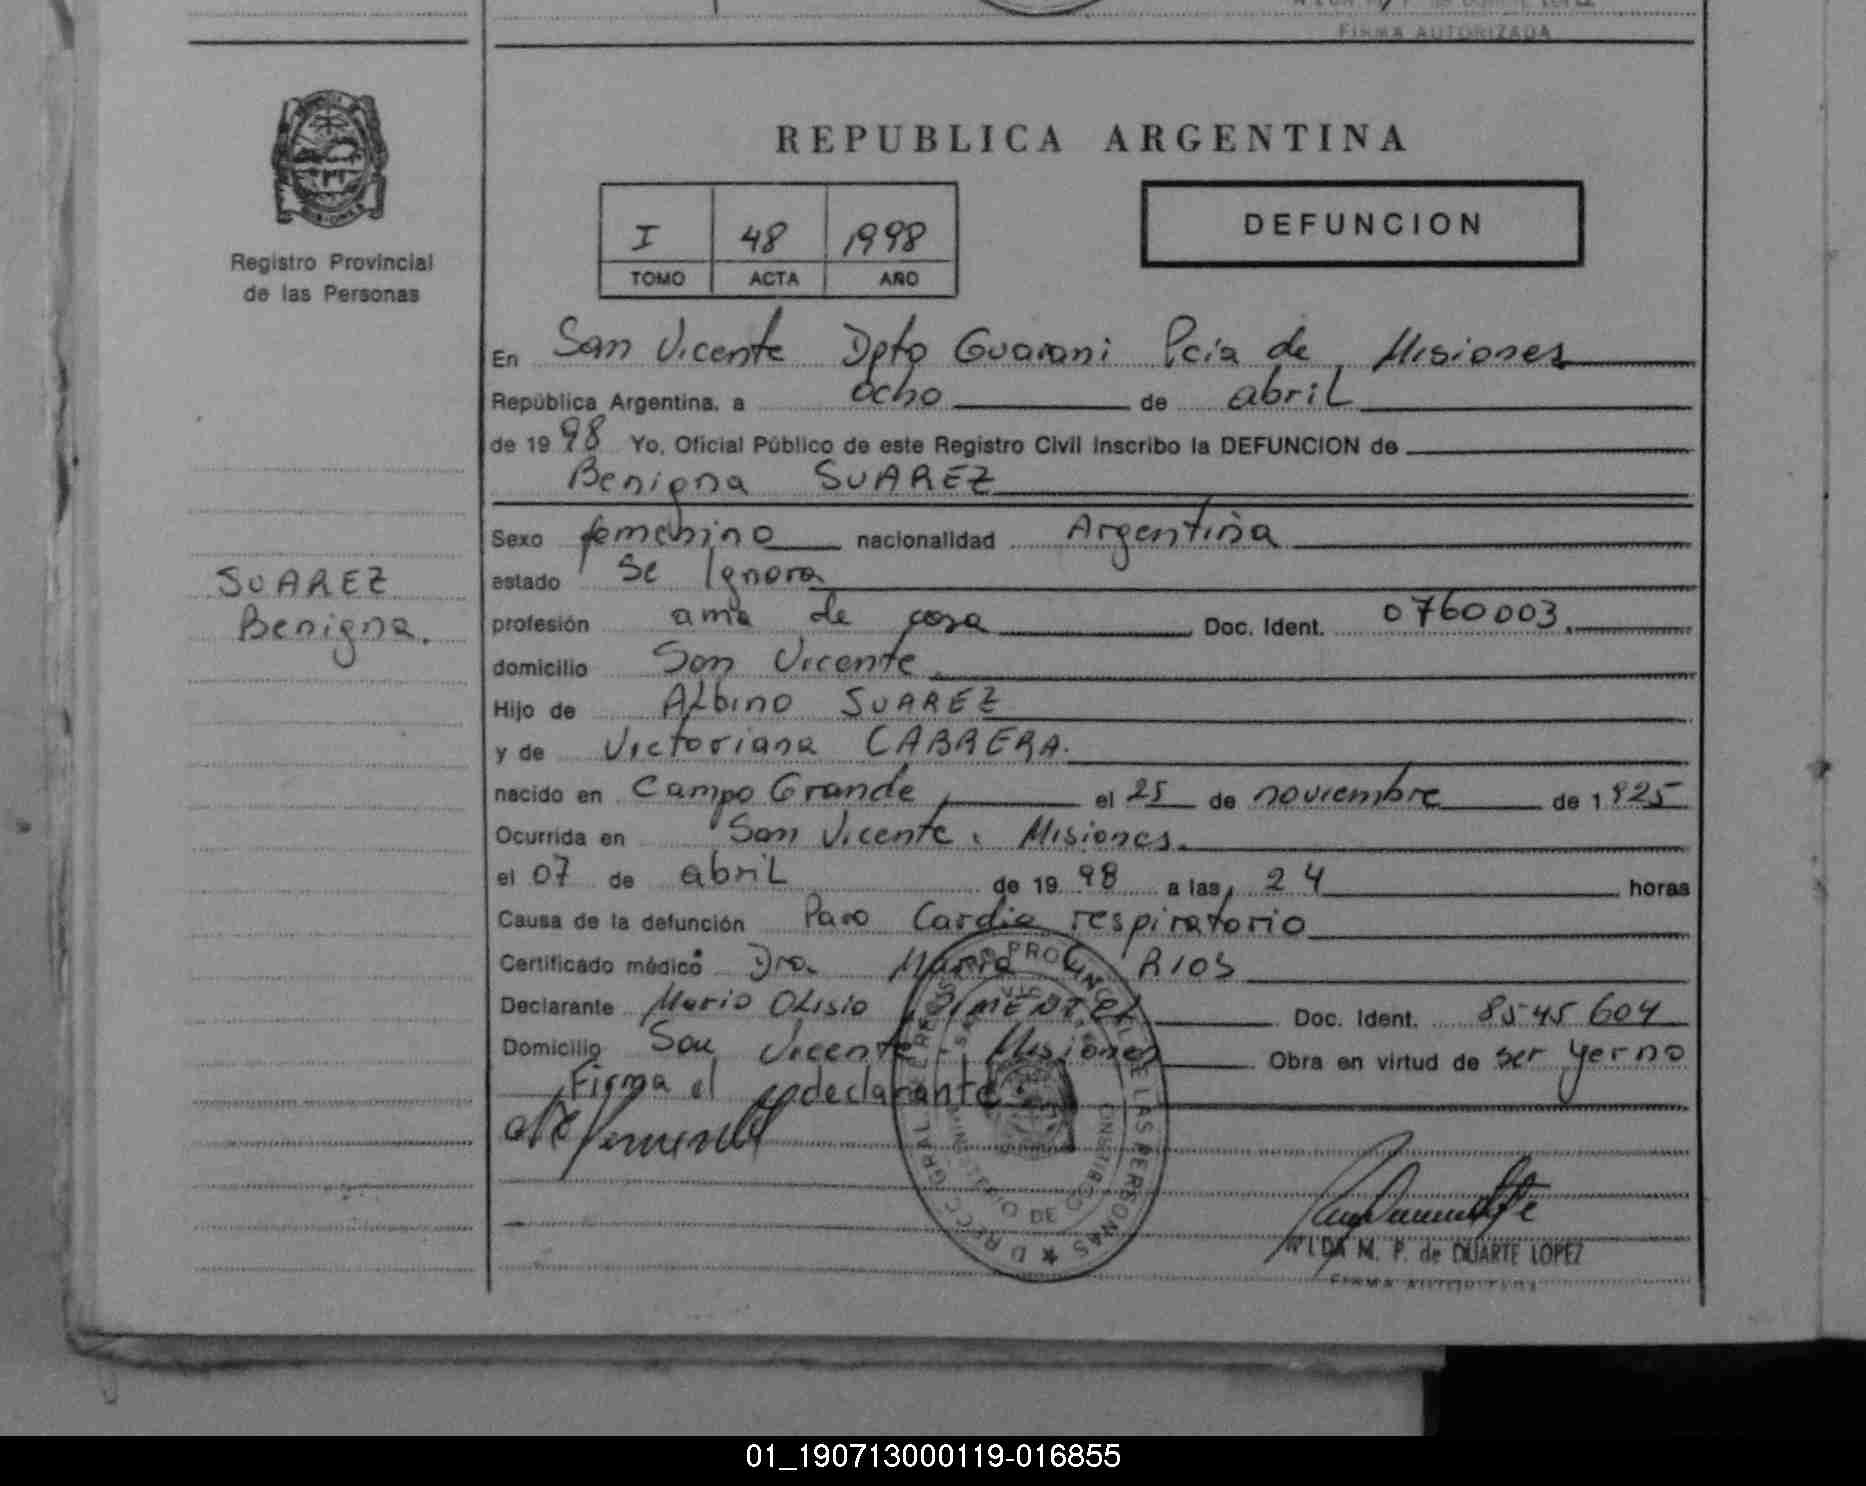 FIRMA AUTORIZADA
Registro Provincial
de las Personas
REPUBLICA ARGENTINA
I 48 1998
TOMO ACTA AÑO
DEFUNCION
En San Vicente Dpto Guarani Pcia de Misiones
República Argentina, a ocho de abril
de 1998 Yo, Oficial Público de este Registro Civil Inscribo la DEFUNCION de
Benigna SUAREZ
Sexo femenino nacionalidad Argentina
estado Se Ignora
SUAREZ
Benigna.
profesión ama de casa Doc. Ident. 0760003.
domicilio San Vicente
Hijo de Albino SUAREZ
y de Victoriana CABRERA.
nacido en Campo Grande, el 25 de noviembre de 1925
Ocurrida en San Vicente. Misiones.
el 07 de abril de 1998 a las 24 horas
Causa de la defunción Paro Cardio respiratorio
Certificado médico Dra. María RIOS
Declarante Mario Olisio PIMENTEL Doc. Ident. 8545604
Domicilio San Vicente, Misiones Obra en virtud de ser yerno
Firma el declarante
M. P. de DUARTE LOPEZ
FIRMA AUTORIZADA
01_190713000119-016855